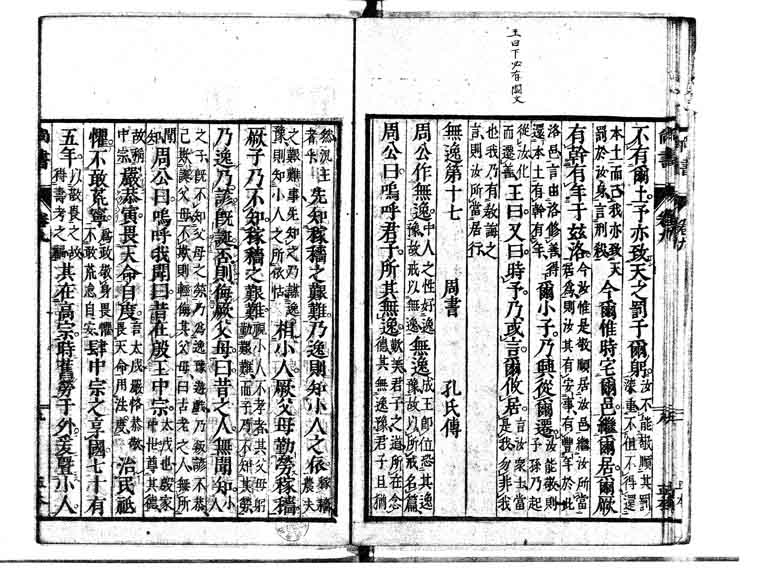 王曰下必有闕文
不有爾土予亦致天之罰于爾躬汝不能敬順其罰深重不但不得還
本土而已我亦致天罰於汝身言刑殺今爾惟時宅爾邑繼爾居爾厥
有幹有年于茲洛今汝惟是敬順居汝邑繼汝所當居為則汝其有安事有豐年於此
洛邑言由洛修善得還本土有幹有年爾小子乃興從爾遷汝能敬則子孫乃起
從汝化而遷善王曰又曰時予乃或言爾攸居言汝衆士當是我勿非我
也我乃有教誨之言則汝所當居行
無逸第十七 周書 孔氏傳
周公作無逸中人之性好逸豫故戒以無逸無逸成王即位恐其逸豫故以所戒名篇
周公曰嗚呼君子所其無逸歎美君子之道所在念德其無逸豫君子且猶
然況王者乎先知稼穡之艱難乃逸則知小人之依稼穡農夫
之艱難事先知之乃謀逸豫則知小人之所依怙相小人厥父母勤勞稼穡
厥子乃不知稼穡之艱難視小人不孝者其父母躬勤艱難而子乃不知其勞
乃逸乃諺既誕否則侮厥父母曰昔之人無聞知小人
之子既不知父母之勞乃為逸豫遊戲乃叛諺不恭已欺誕父母不欺則輕侮其父母曰古老之人無所
聞知周公曰嗚呼我聞曰昔在殷王中宗太戊也殷家中世尊其德
故稱中宗嚴恭寅畏天命自度言太戊嚴恪恭敬畏天命用法度治民祗
懼不敢荒寧為政敬身畏懼不敢荒怠自安肆中宗之享國七十有
五年以敬畏之故得壽考之福其在高宗時舊勞于外爰曁小人
尚書